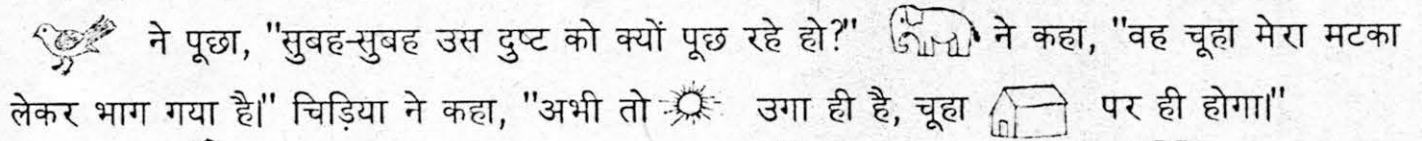 ने पूछा, "सुबह-सुबह उस दुष्ट को क्यों पूछ रहे हो?" ने कहा, "वह चूहा मेरा मटका
लेकर भाग गया है।" चिड़िया ने कहा, "अभी तो उगा ही है, चूहा पर ही होगा।"